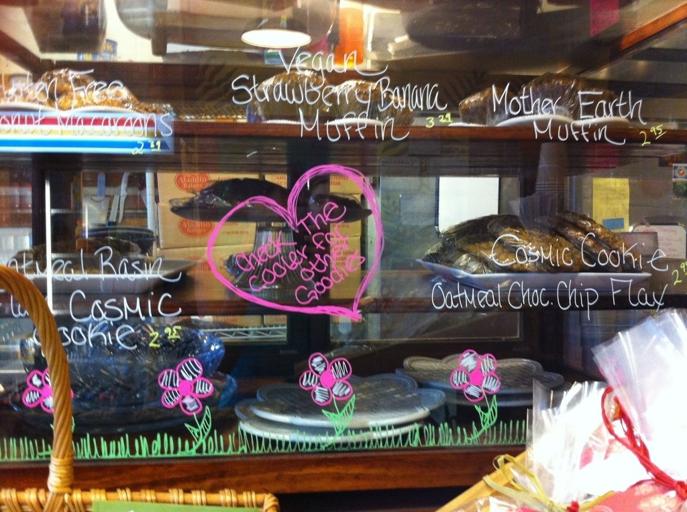 Free
Macaroons
Vegan
Strawberry Banana
Muffin 3.29
Mother Earth
Muffin 2.95
Check The
cooler for
other
Goodies
Rasin
Cosmic
ookie 2.95
Cosmic Cookie
Oatmeal Choc. Chip Flax